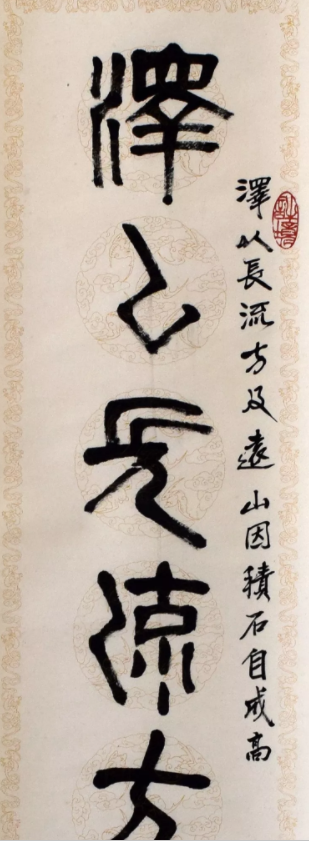 澤以長流方及遠山因積石自成高
澤以長流方